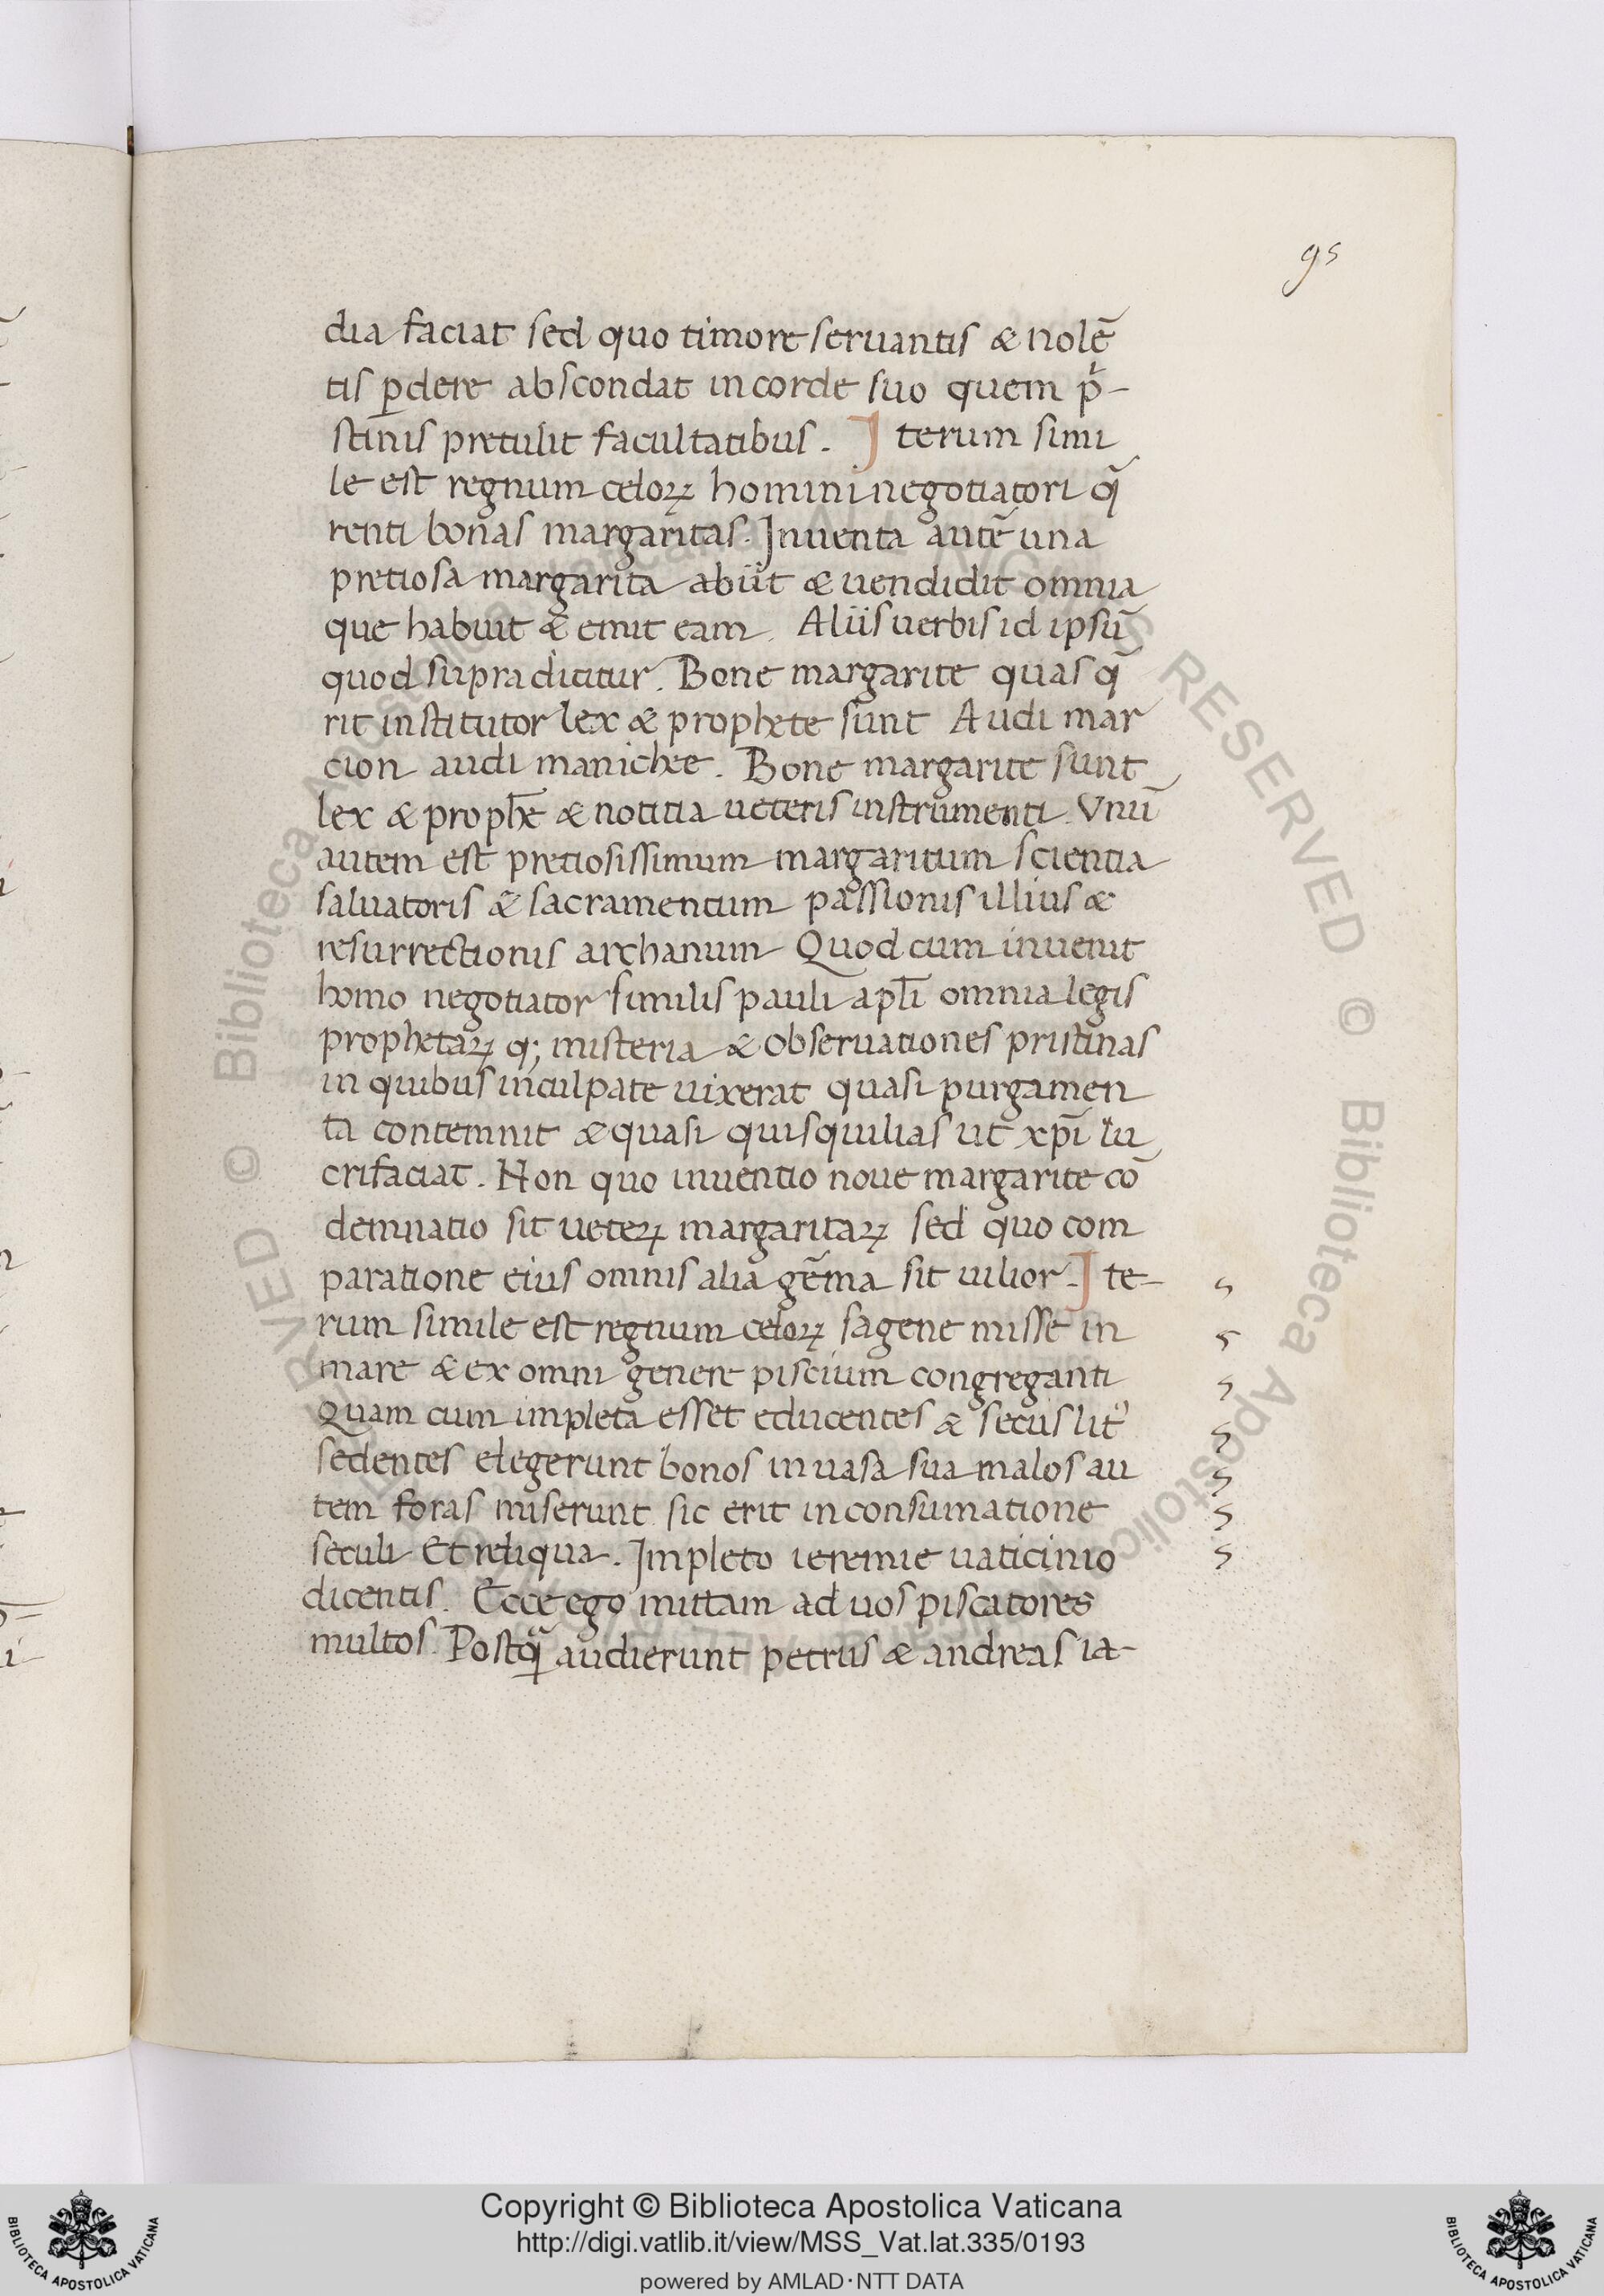 95
dia faciat sed quo timore seruantis & nolē
tis ꝑdere abscondat in corde suo quem pͥ-
stinis pretulit facultatibus. Iterum simi
le est regnum celoꝝ homini negotiatori q̄
renti bonas margaritas. Inuenta autē una
pretiosa margarita abiit & uendidit omnia
que habuit & emit eam. Aliis uerbis id ipsū
quod supra dicitur. Bone margarite quas q̄
rit institutor lex & prophete sunt Audi mar
cion audi manichee. Bone margarite sunt
lex & proph̄e & notitia ueteris instrumenti. Vnū
autem est pretiosissimum margaritum scientia
saluatoris & sacramentum passionis illius &
resurrectionis archanum Quod cum inuenit
homo negotiator similis pauli apl̄i omnia legis
prophetaꝝ q; misteria & obseruationes pristinas
in quibus inculpate uixerat quasi purgamen
ta contemnit & quasi quisquilias ut xp̄i lu
crifaciat. Non quo inuentio noue margarite cō
demnatio sit ueteꝝ margaritaꝝ sed quo com
paratione eius omnis alia gēma sit uilior. Ite-
rum simile est regnum celoꝝ sagene misse in
mare & ex omni genere piscium congreganti
Quam cum impleta esset educentes & secus lit᾽
sedentes elegerunt bonos in uasa sua malos au
tem foras miserunt sic erit in consumatione
seculi Et reliqua. Impleto ieremie uaticinio
dicentis. Ecce ego mittam ad uos piscatores
multos. Postꝙ̄ audierunt petrus & andreas ia-
Copyright © Biblioteca Apostolica Vaticana
http://digi.vatlib.it/view/MSS_Vat.lat.335/0193
powered by AMLAD·NTT DATA
BIBLIOTECA APOSTOLICA VATICANA
BIBLIOTECA APOSTOLICA VATICANA